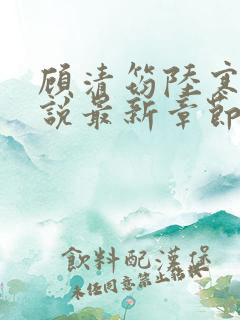 顾清笏陸寒
說最新章節
飲料配漢堡
未經同意禁止轉載